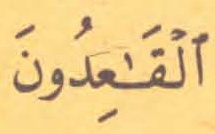 ٱلۡقَٰعِدُونَ